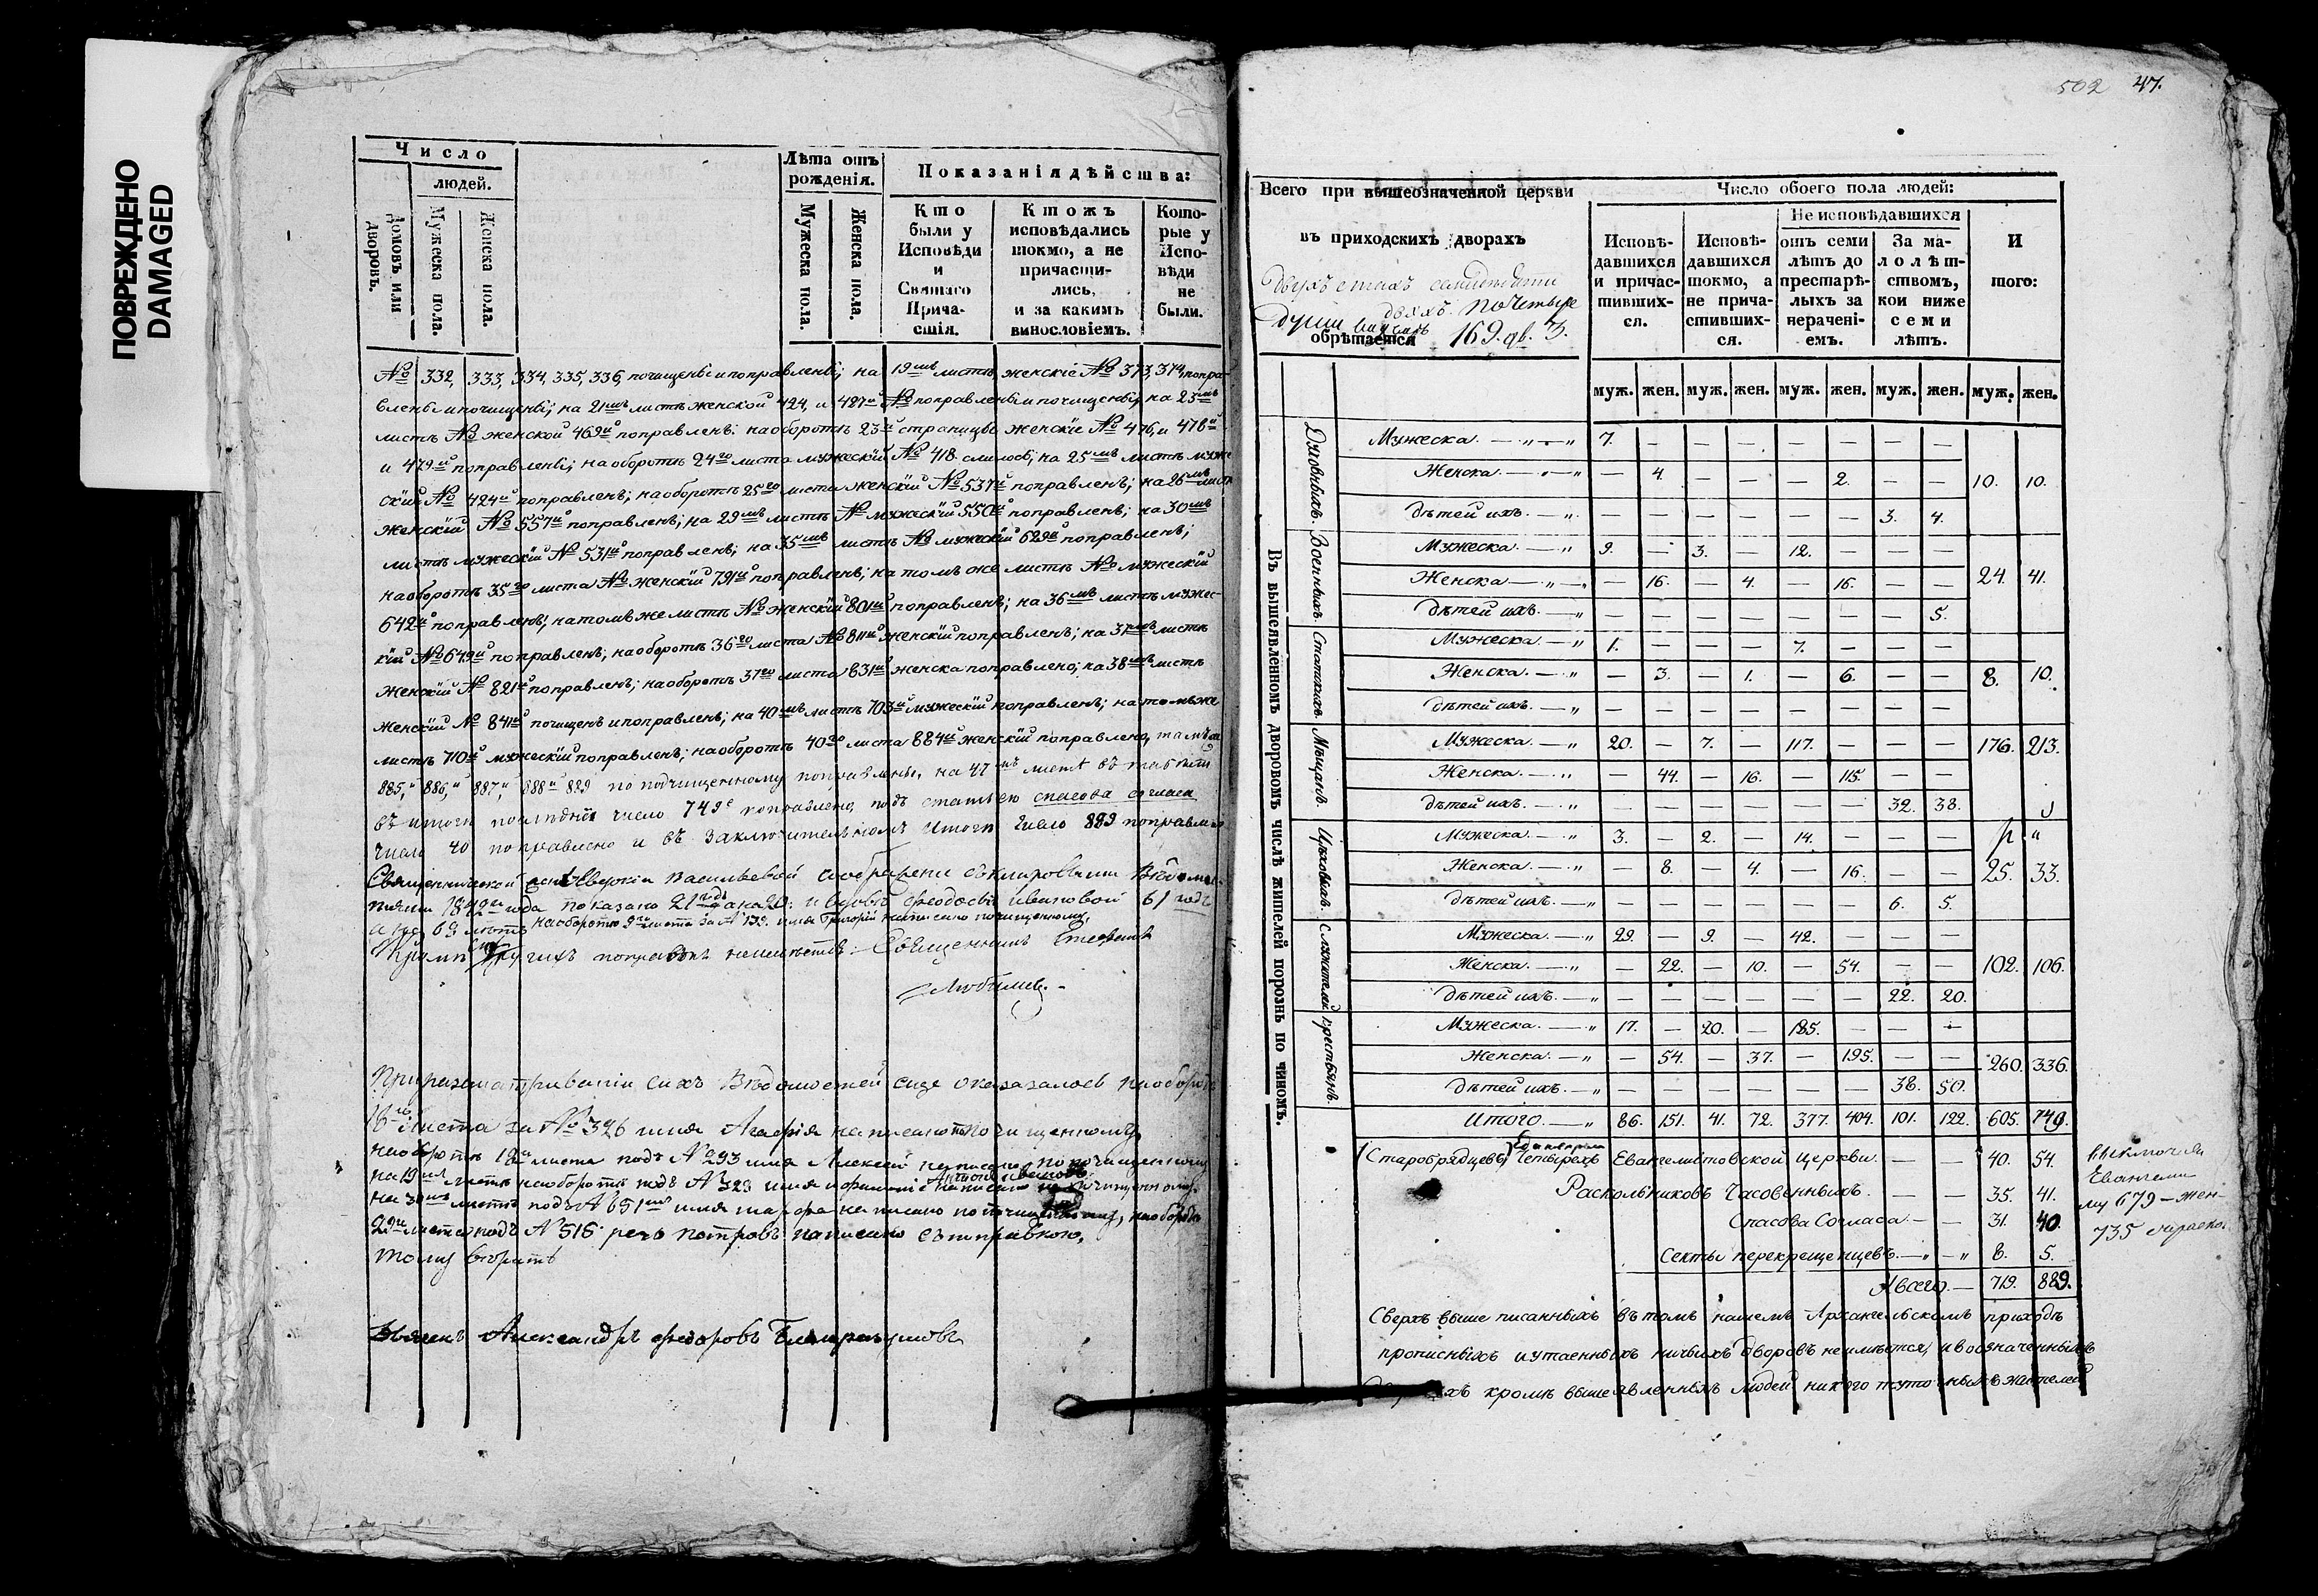 ПОВРЕЖДЕНО
DAMAGED
Число
людей.
Домовъ или дворовъ.
Мужеска пола.
Женска пола.
Лѣта отъ рожденія.
Мужеска пола.
Женска пола.
Показанія дѣйства:
Кто были у Исповѣди и Святаго Причастія.
Ктожъ исповѣдались токмо, а не причастились, и за какимъ винословіемъ.
Которые у Исповѣди не были.
№ 332, 333, 334, 335, 336, почищены и поправлены; на 19мъ листѣ женскіе № 373, 374, поправ-
лены и почищены; на 21мъ листѣ женской 424, и 427й № поправлены и почищены, на 23мъ
листѣ № женской 469й поправленъ: на оборотѣ 23й страницы женскіе № 476, и 478й
и 479й поправлены; на оборотѣ 24го листа мужескій № 418 слилось; на 25мъ листѣ муже
скій № 424й поправленъ; на оборотѣ 25го листа женскій № 537й поправленъ; на 26мъ листѣ
женскій № 557й поправленъ; на 29мъ листѣ № мужескій 550й поправленъ; на 30мъ
листѣ мужескій № 531й поправленъ; на 35мъ листѣ № мужескій 629й поправленъ;
на оборотѣ 35го листа № женскій 791й поправленъ; на томъ же листѣ № мужескій
642й поправленъ; на томъ же листѣ № женскій 801й поправленъ; на 36мъ листѣ мужес-
кій № 649й поправленъ; на оборотѣ 36го листа № 811й женскій поправленъ; на 37мъ листѣ
женскій № 821й поправленъ; на оборотѣ 37го листа 831й женска поправлено; на 38мъ листѣ
женскій № 841й почищенъ и поправленъ; на 40мъ листѣ 703й мужескій поправленъ; на томъ же
листѣ 710й мужескій поправленъ; на оборотѣ 40го листа 884й женскій поправлено, тамъ же
885, 886, 887, 888 и 889 по подчищенному поправлены, на 47мъ листѣ въ табели
въ итогѣ послѣднѣ число 749е поправлено, подъ статьею спасова согласа
число 40 поправлено и въ заключительномъ итогѣ число 889 поправлено
1842го года показано 21 годъ а на 20: и вдовѣ Феодосьи Ивановой 61 годъ
на оборотѣ 9го листа за № 139. имя Григорій написано по чищенному,
поправокъ неимѣется: Священникъ Стефанъ
Любимовъ.
При разсматриваніи сихъ Вѣдомостей еще оказалось на оборотѣ
16го листа за № 326 имя Агафія написано по чищенному,
на оборотѣ 18го листа подъ № 293 имя Алексей написано по почищенному
22го листа подъ № 516 речь Петровъ написано съ поправкою,
тому вѣрить
Александръ Федоровъ
502 47.
Всего при вышеозначенной церкви
въ приходскихъ дворахъ
души
обрѣтается 169. дв. 3.
Число обоего пола людей:
Исповѣдавшихся и причастившихся.
Исповѣдавшихся токмо, а не причастившихся.
Не исповѣдавшихся
отъ семи лѣтъ до престарѣлыхъ за нерачені-емъ.
За малолѣтствомъ, кои ниже семи лѣтъ.
Итого:
муж. жен. муж. жен. муж. жен. муж. жен. муж. жен.
Въ вышеявленномъ дворовомъ числѣ жителей порознь по чиномъ.
Духовныхъ.
Мужеска. — 7. — — — — — — —
Женска. — — 4. — — — 2. — — 10. 10.
Дѣтей ихъ. — — — — — — — 3. 4.
Военныхъ.
Мужеска. — 9. — 3. — 12. — — —
Женска — — 16. — 4. — 16. — — 24. 41.
Дѣтей ихъ. — — — — — — — — 5.
Статскихъ.
Мужеска. — 1. — — — 7. — — —
Женска. — — 3. — 1. — 6. — — 8. 10.
Дѣтей ихъ. — — — — — — — — —
Мѣщанъ.
Мужеска. — 20. — 7. — 117. — — — 176. 213.
Женска. — — 44. — 16. — 115. — —
Дѣтей ихъ. — — — — — — — 32. 38.
Цѣховыхъ.
Мужеска. — 3. — 2. — 14. — — —
Женска. — — 8. — 4. — 16. — — 25. 33.
Дѣтей ихъ. — — — — — — — 6. 5.
Служителей
Мужеска. — 29. — 9. — 42. — — —
Женска. — — 22. — 10. — 54. — — 102. 106.
Дѣтей ихъ. — — — — — — — 22. 20.
Крестьянъ.
Мужеска. — 17. — 20. — 185. — — —
Женска. — — 54. — 37. — 195. — — 260. 336.
Дѣтей ихъ. — — — — — — — 38. 50.
Итого. — 86. 151. 41. 72. 377. 404. 101. 122. 605. 749.
Старобрядцевъ Четырехъ Евангелистовской Церкви. — — 40. 54.
Раскольниковъ Часовенныхъ. — — 35. 41.
Спасова Согласа — — 31. 40.
Секты перекрещенцевъ. — — 8. 5.
Авсего. — 719. 889.
679 – жен
735
Сверхъ выше писанныхъ въ томъ нашемъ Архангельскомъ приходѣ
прописныхъ и утаенныхъ ничьихъ дворовъ неимѣется; и во означенныхъ
кромѣ вышеявленныхъ людей никого туточныхъ жителей